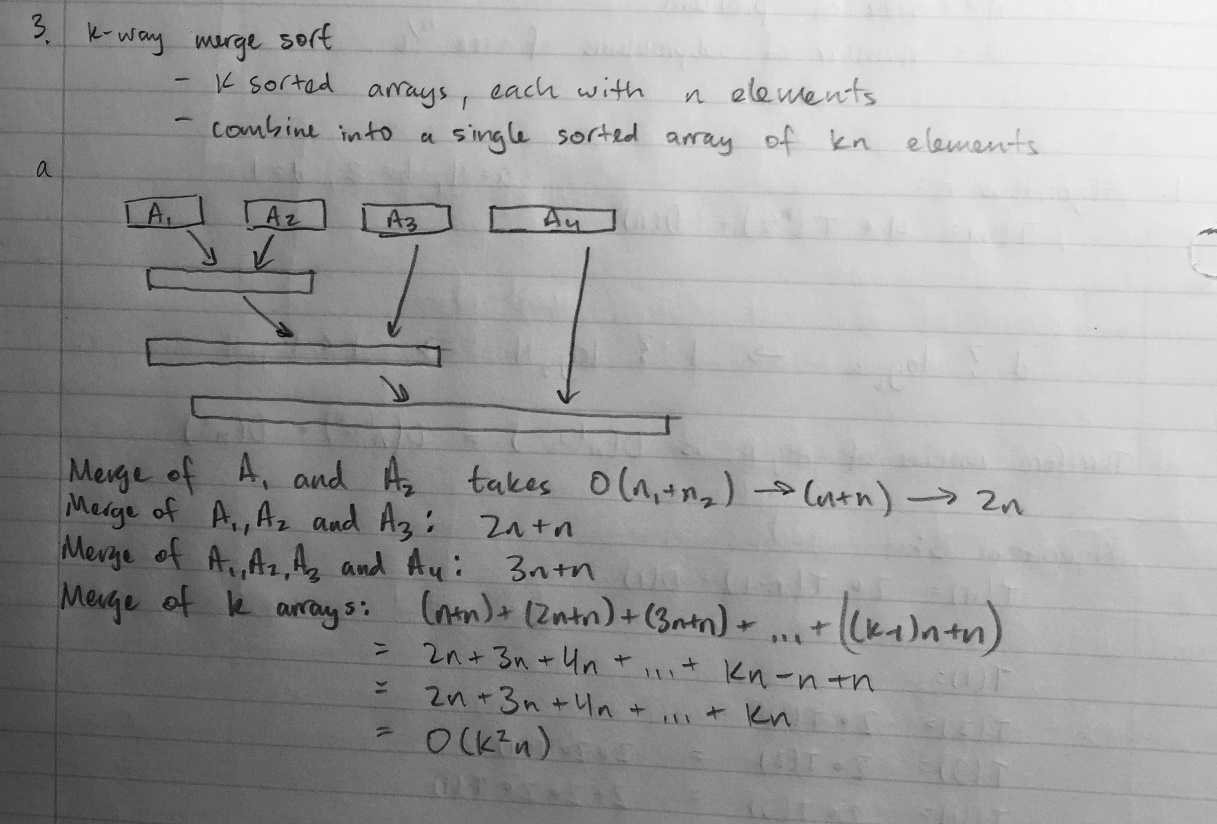 3. k-way merge sort
- k sorted arrays, each with n elements
- combine into a single sorted array of kn elements
a
A₁ A₂ A₃ A₄
Merge of A₁ and A₂ takes O(n₁+n₂) → (n+n) → 2n
Merge of A₁,A₂ and A₃: 2n+n
Merge of A₁,A₂,A₃ and A₄: 3n+n
Merge of k arrays: (n+n)+(2n+n)+(3n+n)+...+((k-1)n+n)
= 2n+3n+4n+...+kn-n+n
= 2n+3n+4n+...+kn
= O(k²n)